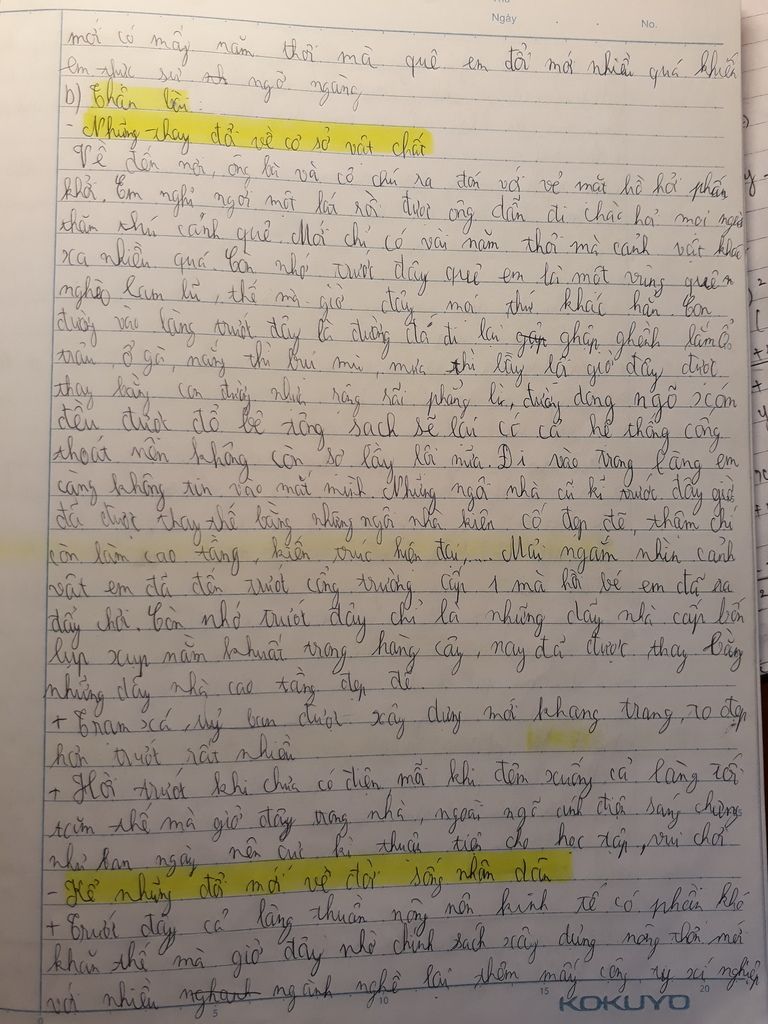 Ngày . . No.
mới có mấy năm thôi mà quê em đổi mới nhiều quá khiến
em thực sự ngỡ ngàng
b) Thân bài:
- Những thay đổi về cơ sở vât chất
Về đến nơi, ông bà và cô chú ra đón với vẻ mặt hồ hởi phấn
khởi. Em nghỉ ngơi một lát rồi được ông dẫn đi chào hỏi mọi người
thăm thú cảnh quê. Mới chỉ có vài năm thôi mà cảnh vật khác
xa nhiều quá. Còn nhớ trước đây quê em là một vùng quê
nghèo lam lũ, thế mà giờ đây mọi thứ khác hẳn. Con
đường vào làng trước đây là đường đá đi lại ghập ghềnh lắm ổ
trâu, ổ gà, nắng thì bụi mù, mưa thì lầy lội giờ đây được
thay bằng con đường nhựa rộng rãi phẳng lì, đường dong ngõ xóm
đều được đổ bê tông sạch sẽ lại có cả hệ thống cống
thoát nên không còn sợ lầy lội nữa. Đi vào trong làng em
càng không tin vào mắt mình. Những ngôi nhà cũ kĩ trước đây giờ
đã được thay thế bằng những ngôi nhà kiên cố đẹp đẽ, thậm chí
còn làm cao tầng, kiến trúc hiện đại,.... Mải ngắm nhìn cảnh
vật em đã đến trước cổng trường cấp 1 mà hồi bé em đã ra
đây chơi. Còn nhớ trước đây chỉ là những dãy nhà cấp bốn
lụp xụp nằm khuất trong hàng cây, nay đã được thay bằng
những dãy nhà cao tầng đẹp đẽ
+ Trạm xá, uỷ ban được xây dựng mới khang trang, to đẹp
hơn trước rất nhiều
+ Hồi trước khi chưa có điện, mỗi khi đêm xuống cả làng tối
tăm thế mà giờ đây trong nhà, ngoài ngõ ánh điện sáng chưng
như ban ngày nên cực kì thuận tiện cho học tập, vui chơi
- Kể những đổi mới về đời sống nhân dân
+ Trước đây cả làng thuần nông nên kinh tế có phần khó
khăn thế mà giờ đây nhờ chính sách xây dựng nông thôn mới
với nhiều ngành nghề lại thêm mấy công ty xí nghiệp
5 10 15 20
KOKUYO